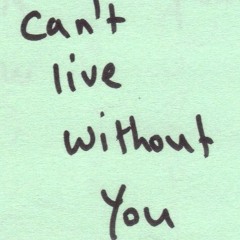 can't
live
without
You